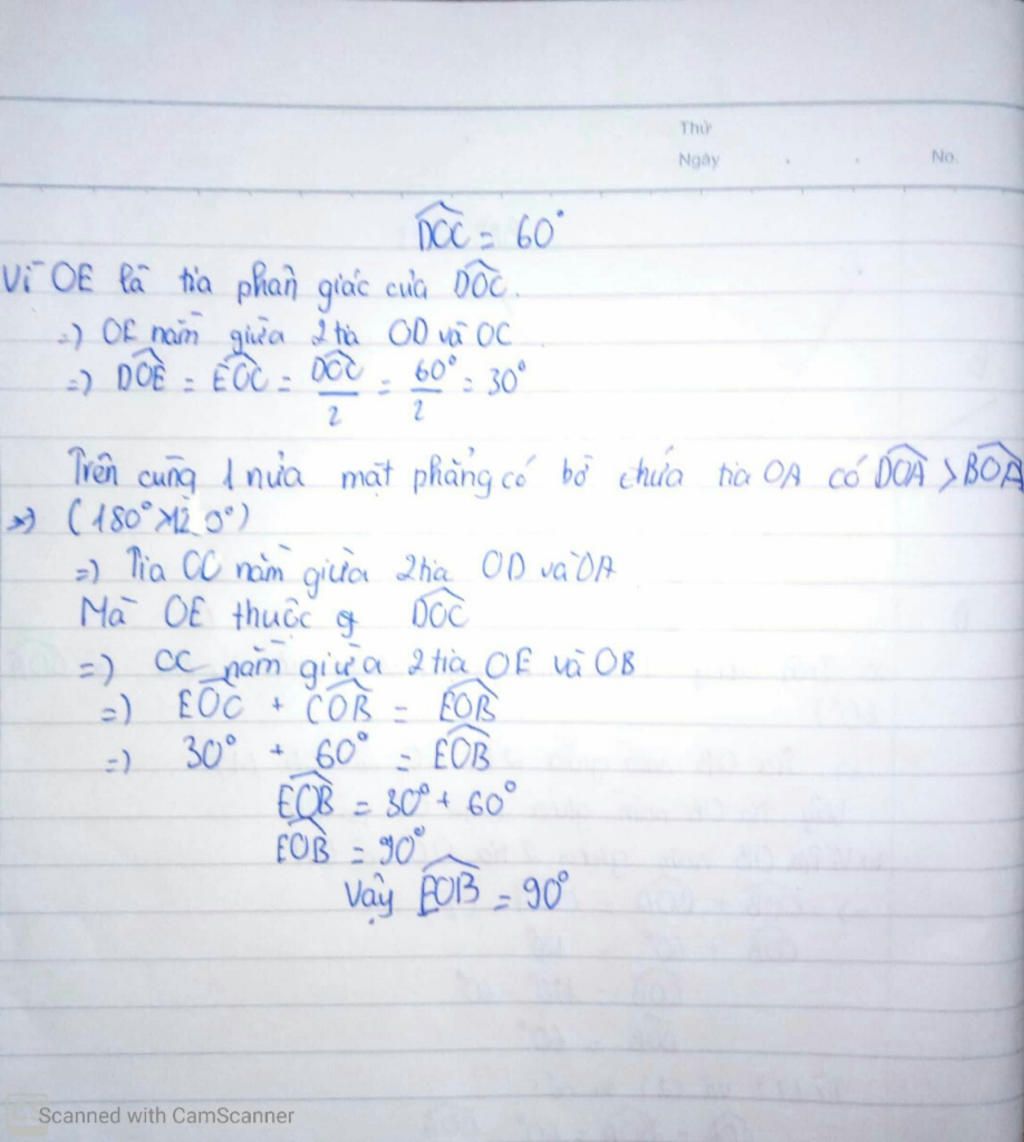 Thứ
Ngày . . No.
DOC = 60°
Vì OE là tia phân giác của DOC.
=) OE nằm giữa 2 tia OD và OC
=) DOE = EOC = DOC/2 = 60°/2 = 30°
Trên cùng 1 nửa mặt phẳng có bờ chứa tia OA có DOA > BOA
(180° > 120°)
=) Tia OC nằm giữa 2 tia OD và OA
Mà OE thuộc DOC
=) OC nằm giữa 2 tia OE và OB
=) EOC + COB = EOB
=) 30° + 60° = EOB
EOB = 30° + 60°
EOB = 90°
Vậy EOB = 90°
Scanned with CamScanner